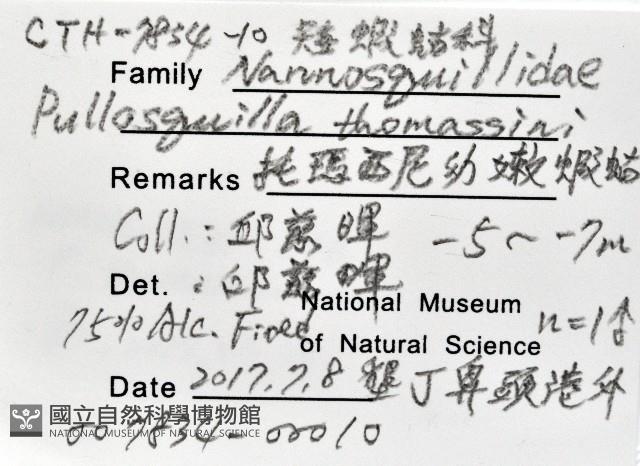 CTH-7854-10 矮蝦蛄科
Family Nannosquillidae
Pullosquilla thomassini
Remarks 托瑪西尼幼嫩蝦蛄
Coll.: 邱慈暉 -5~-7m
Det.: 邱慈暉
National Museum
75% Alc. Fixed n=1
of Natural Science
Date 2017.7.8 墾丁鼻頭港外
國立自然科學博物館
NATIONAL MUSEUM OF NATURAL SCIENCE
007854-00010